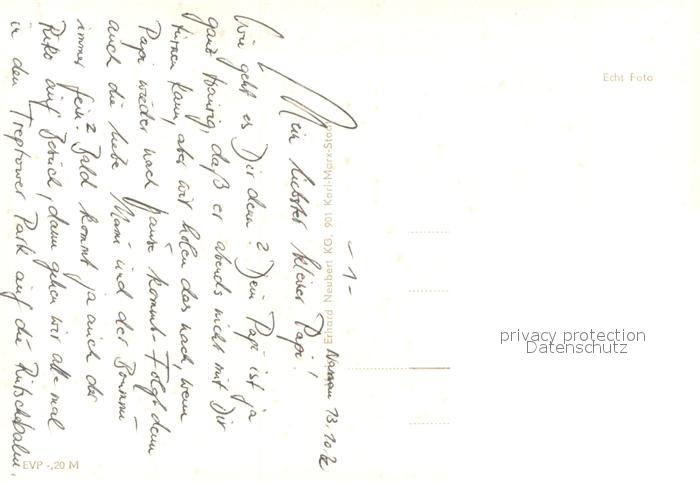 - 1 -
13.10.72
Mein liebster kleiner Papi!
Wie geht es Dir denn? Dein Papi ist ja
ganz traurig, daß er abends nicht mit Dir
turnen kann, aber wir holen das nach, wenn
Papi wieder nach Hause kommt. Folgt denn
auch die liebe Mami und der Bommi
immer fein? Bald kommt ja auch der
Riko auf Besuch, dann gehen wir alle mal
in den Treptower Park auf die Rutschbahn.
Echt Foto
Erhard Neubert KG, 901 Karl-Marx-Stadt
EVP -,20 M
privacy protection
Datenschutz